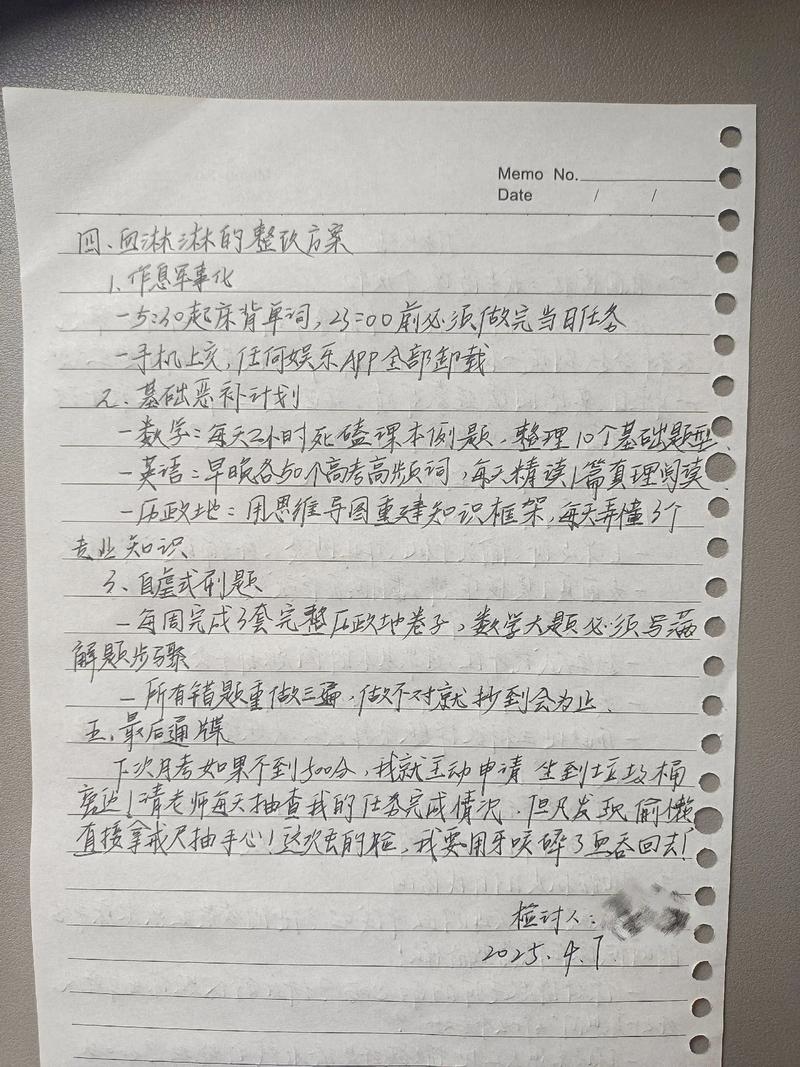 Memo No.
Date / /
四、血淋淋的整改方案
1、作息军事化
－5:30起床背单词，23:00前必须做完当日任务
－手机上交，任何娱乐APP全部卸载
2、基础恶补计划
－数学：每天2小时死磕课本例题，整理10个基础题型
－英语：早晚各50个高考高频词，每天精读1篇真理阅读
－历政地：用思维导图重建知识框架，每天弄懂3个
专业知识
3、自虐式刷题
－每周完成3套完整历政地卷子，数学大题必须写满
解题步骤
－所有错题重做三遍，做不对就抄到会为止、
五、最后通牒
下次月考如果不到500分，我就主动申请 坐到垃圾桶
旁边！请老师每天抽查我的任务完成情况，但凡发现偷懒
直接拿戒尺抽手心！这次丢的脸，我要用牙咬碎了血吞回去！
检讨人：
2025.4.7